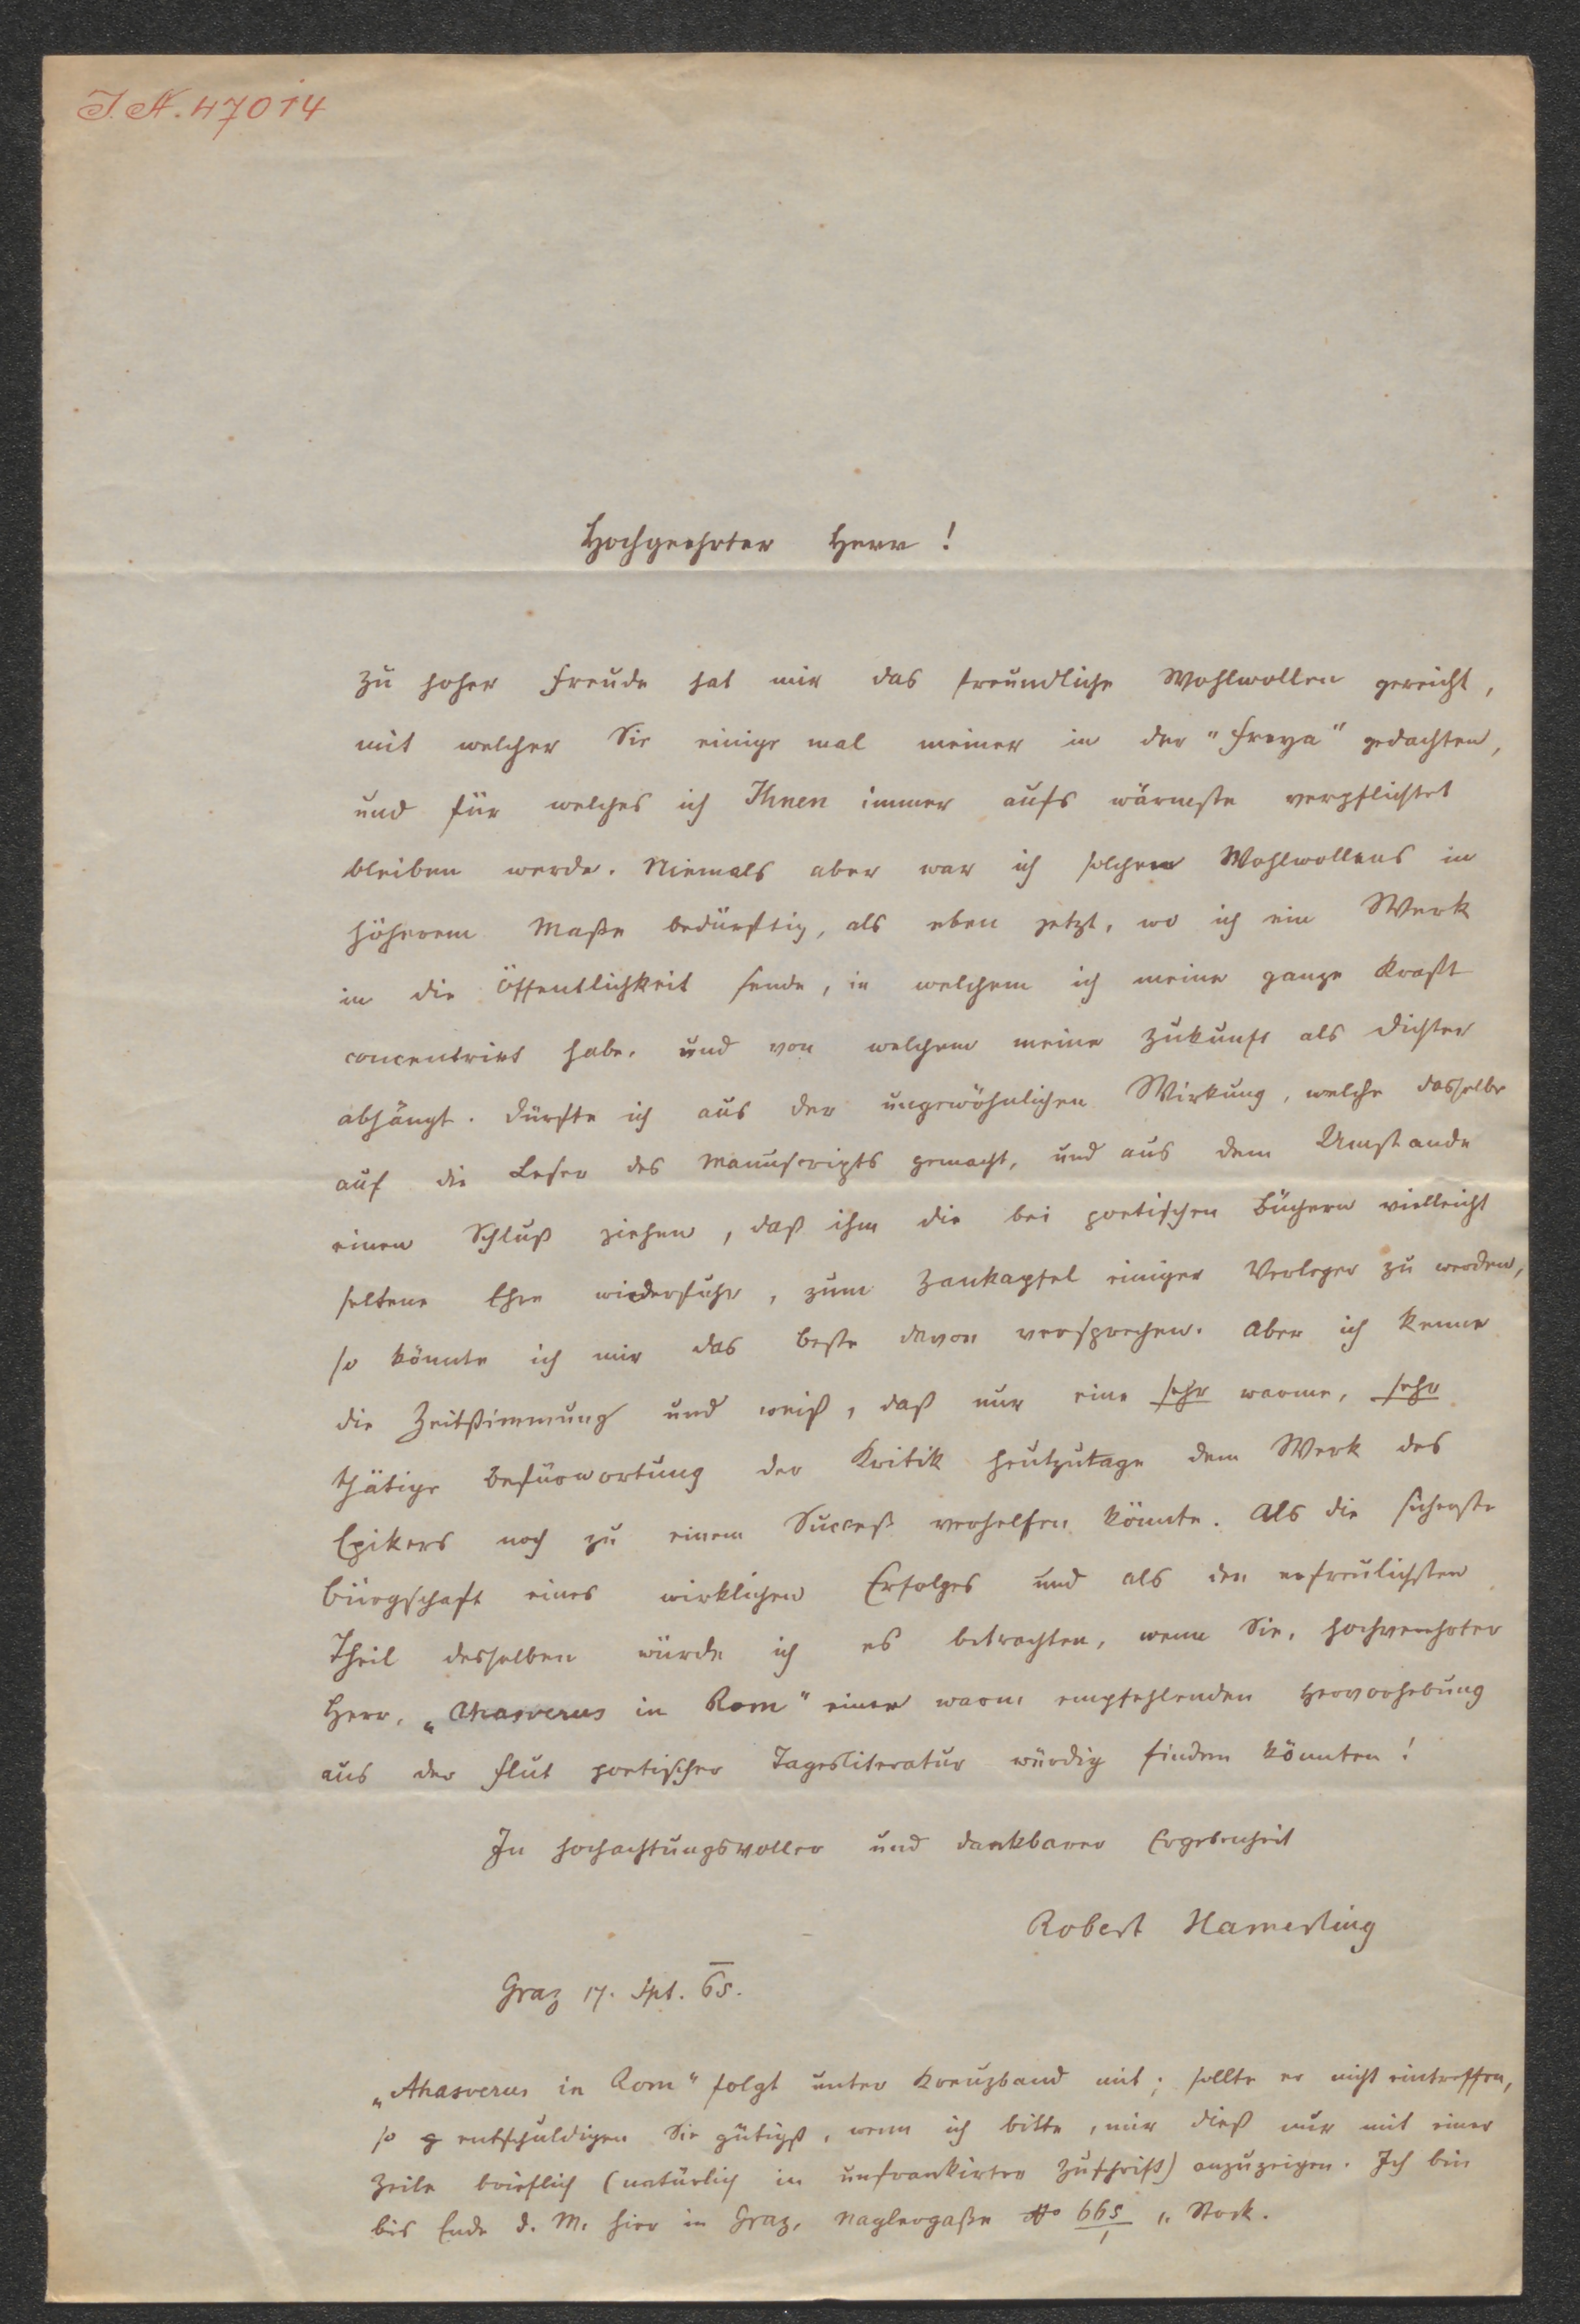 I. N. 47014
Hochgeehrter Herr!
Zu hoher Freude hat mir das freundliche Wohlwollen gereicht,
mit welcher Sie einige mal meiner in der "Freya" gedachten,
und für welches ich Ihnen immer aufs wärmste verpflichtet
bleiben werde. Niemals aber war ich solchen Wohlwollens in
höherem Maße bedürftig, als eben jetzt, wo ich ein Werk
in die Öffentlichkeit sende, in welchem ich meine ganze Kraft
concentrirt habe, und von welchem meine Zukunft als Dichter
abhängt. Dürfte ich aus der ungewöhnlichen Wirkung, welche dasselbe
auf die Leser des Manuscripts gemacht, und aus dem Umstande
einen Schluß ziehen, daß ihm die bei poetischen Büchern vielleicht
seltene Ehre wiederfuhr, zum Zankapfel einiger Verleger zu werden,
so könnte ich mir das beste davon versprechen. Aber ich kenne
die Zeitstimmung und weiß, daß nur eine sehr warme, sehr
thätige Befürwortung der Kritik heutzutage dem Werk des
Epikers noch zu einem Succeß verhelfen könnte. Als die sicherste
Bürgschaft eines wirklichen Erfolges und als den erfreulichsten
Theil desselben würde ich es betrachten, wenn Sie, hochverehrter
Herr, „Ahasverus in Rom" einer warm empfehlenden Hervorhebung
aus der Flut poetischer Tagesliteratur würdig finden könnten!
In hochachtungsvoller und dankbarer Ergebenheit
Robert Hamerling
Graz 17. Spt. 65.
„Ahasverus in Rom" folgt unter Kreuzband mit; sollte er nicht eintreffen,
so entschuldigen Sie gütigst, wenn ich bitte, mir dieß nur mit einer
Zeile brieflich (natürlich in unfrankirter Zuschrift) anzuzeigen. Ich bin
bis Ende d. M. hier in Graz, Naglergaße No 665 1. Stock.